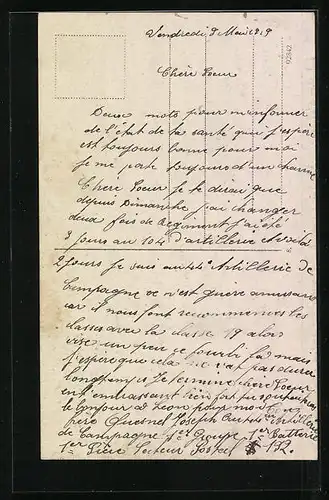 Vendredi 9 Mai 1919
Chère Soeur
Deux mots pour m'informer
de l'état de ta santé qui j'espère
est toujours bonne pour moi
je me porte toujours d'un charme
Chere Soeur je te dirai que
depuis Dimanche j'ai changer
deux fois de Regiment j'ai été
3 jours au 104 d'artillerie et voilà
2 jours je suis au Artillerie de
Campagne ce n'est guère amusant
car il nous font recommencer les
classes avec la classe 19 alors
vise un peu ce fourbi là mais
j'espère que cela ne vat pas durer
longtemps Je termine chère Soeur
en t'embrassant bien fort
le bonjour a Leon pour moi Ton
frère Quesnel Joseph Artillerie
de Campagne 1er Groupe 1er Batterie
1er Pièce Secteur Postal 192
92842